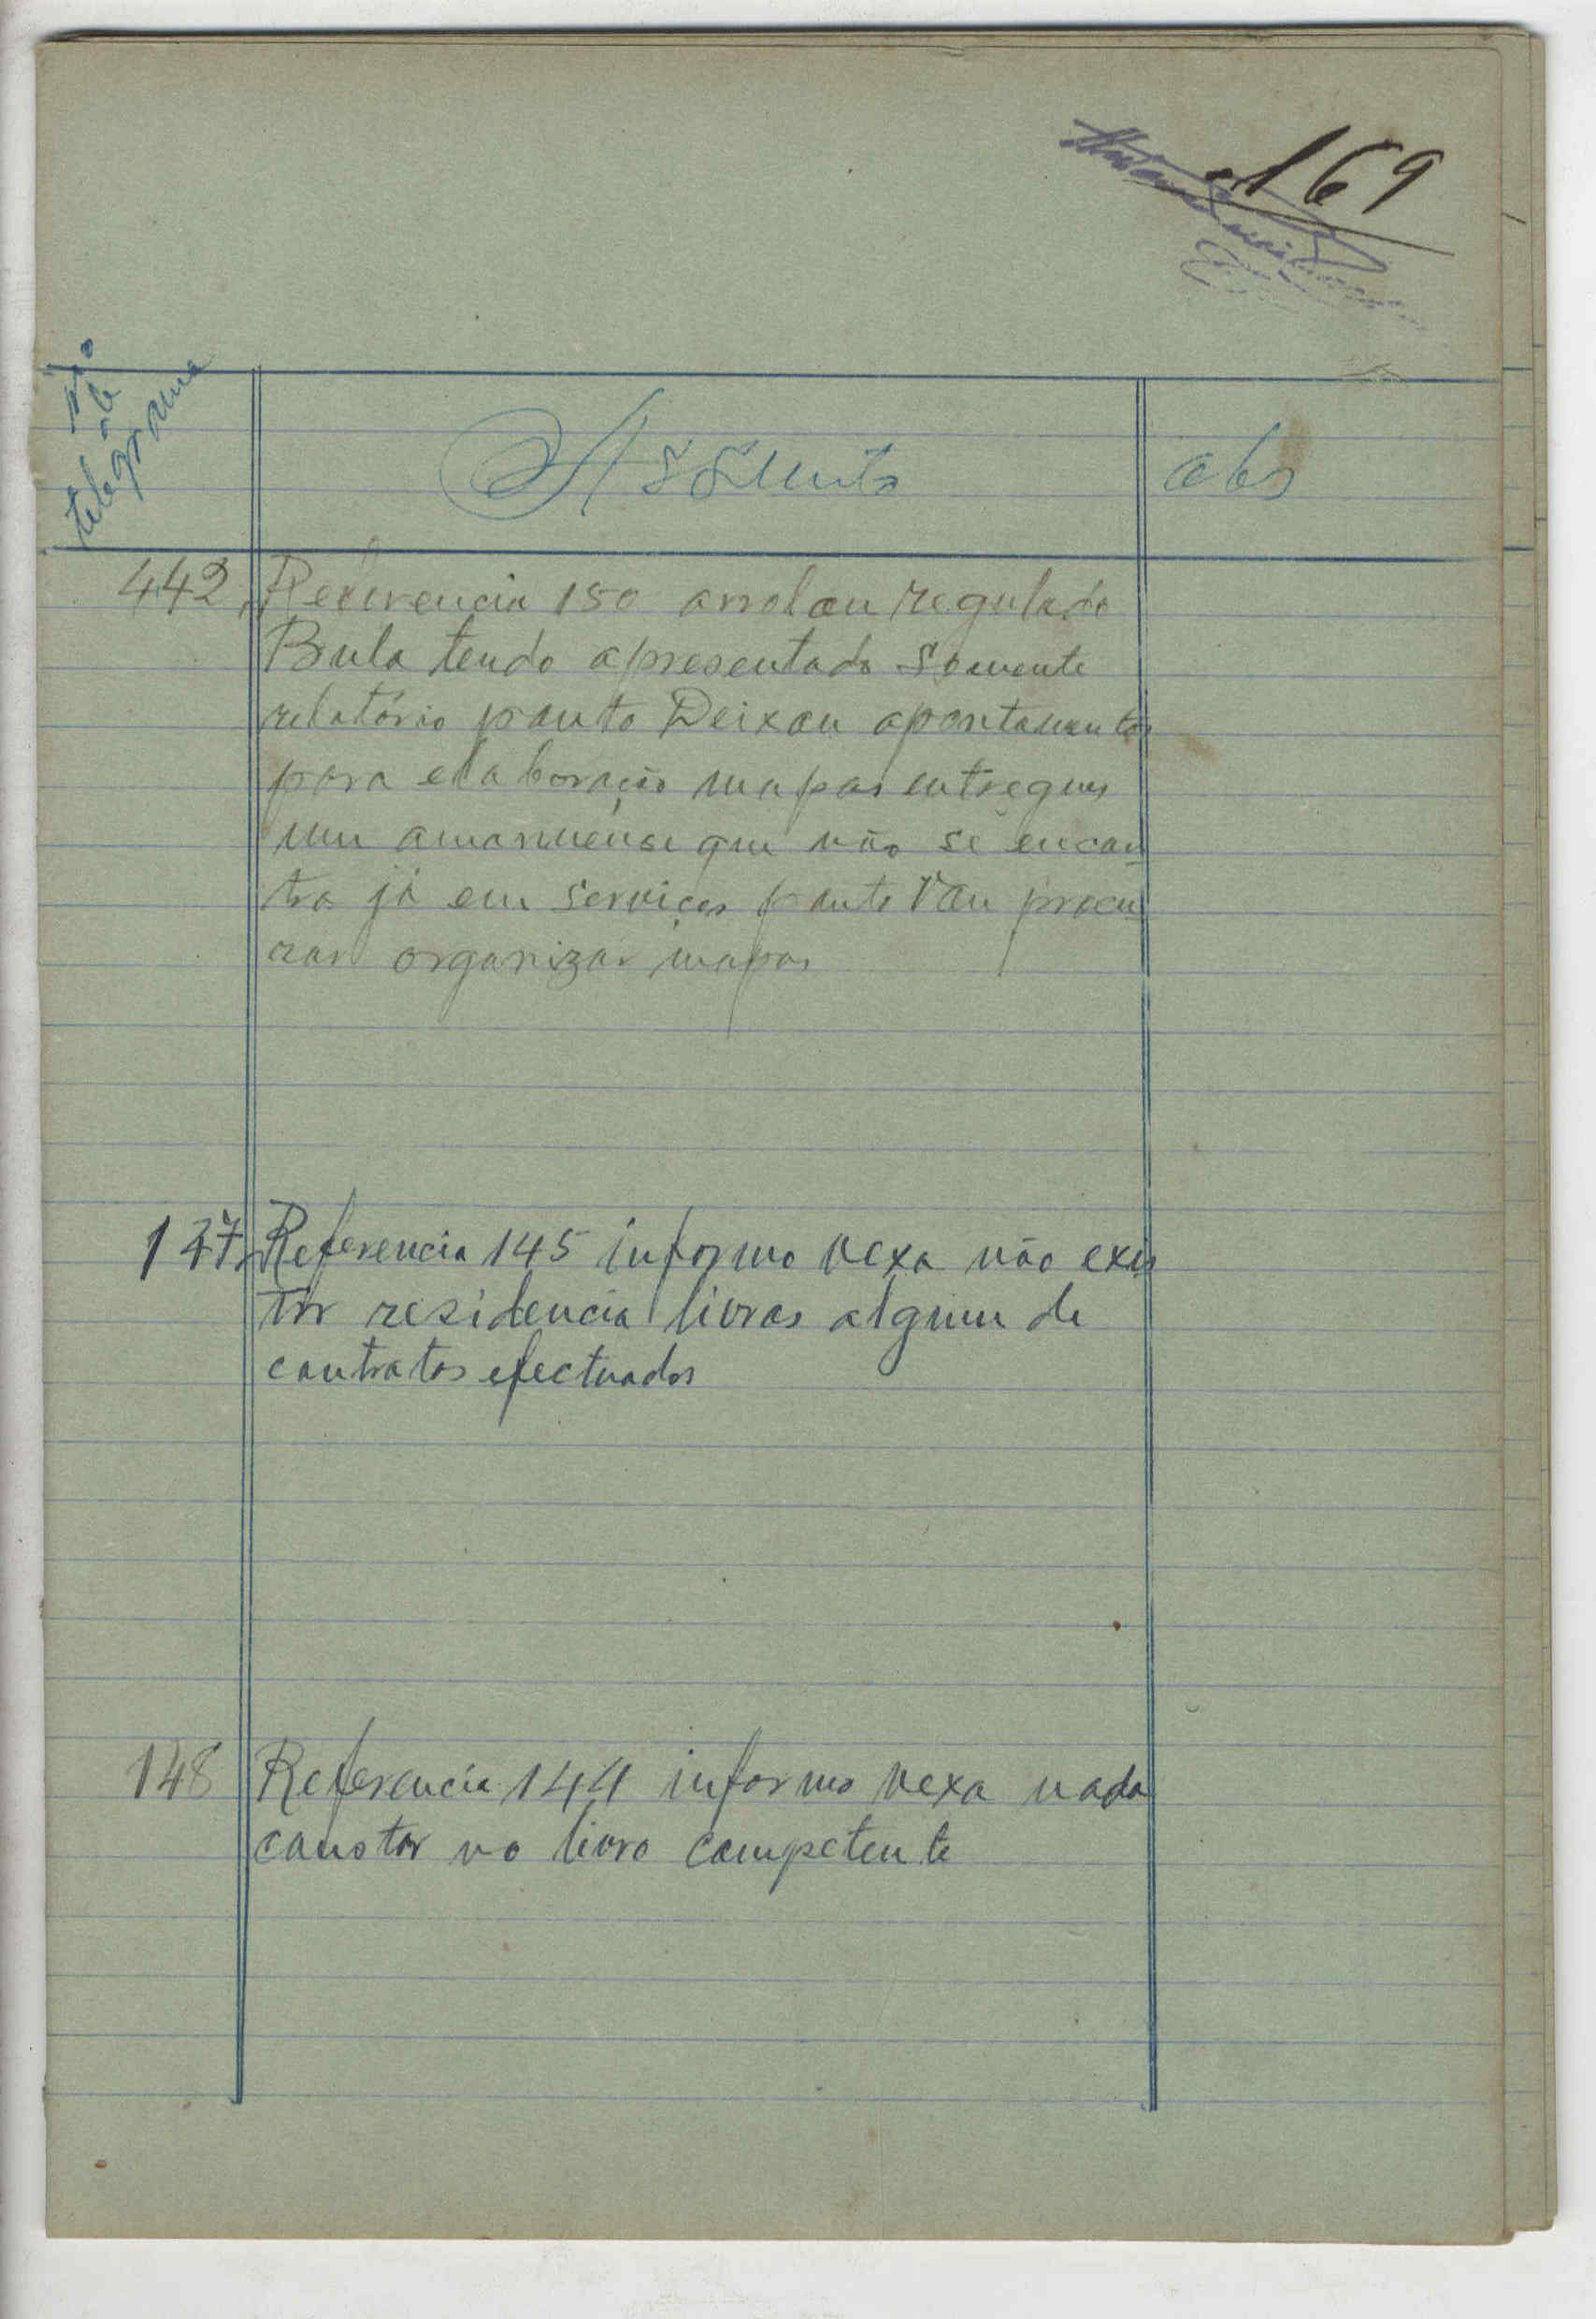 169
Nº
de
telegrama
Assunto
obs
442 Referencia 150 arrolou regulado
Bula tendo apresentado somente
relatório ponto Deixou apontamentos
para elaboração mapas entregues
um amanuense que não se encon
tra já em serviços ponto Vou procu
rar organizar mapas
147 Referencia 145 informo vexa não exis
tir residencia livros algum de
contratos efectuados
148 Referencia 144 informo vexa nada
constar no livro competente